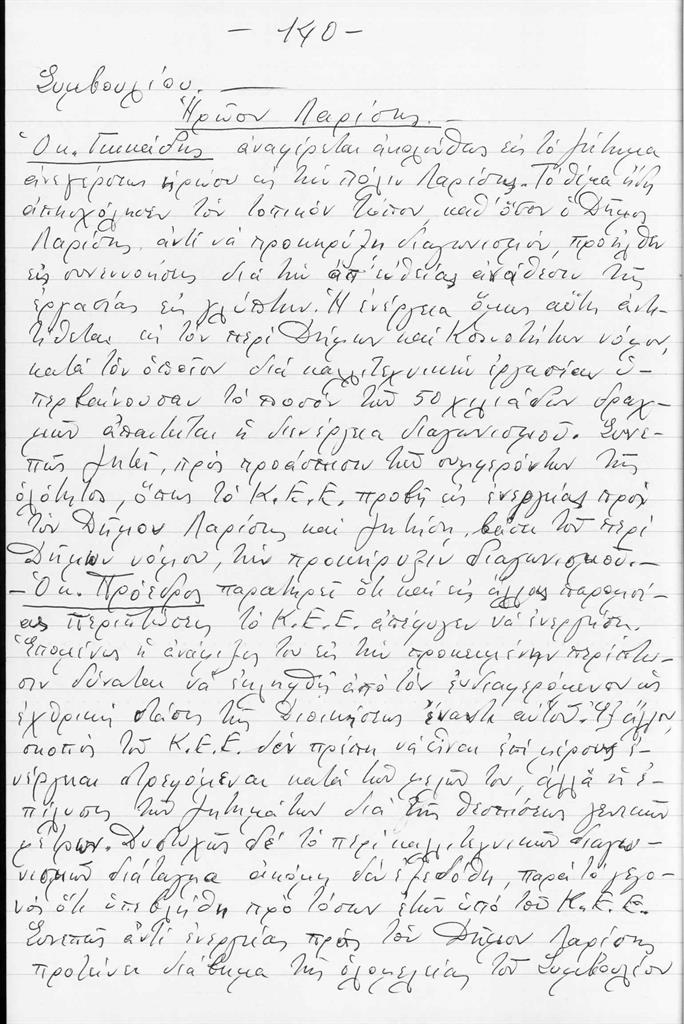 - 140 -
Συμβουλίου.
Ἡρῶον Λαρίσης.-
Ὁ κ. ἀναφέρεται ἀκολούθως εἰς τὸ ζήτημα
ἀνεγέρσεως ἡρώου εἰς τὴν πόλιν Λαρίσης. Τὸ θέμα ἤδη
ἀπησχόλησεν τὸν τοπικὸν τύπον, καθ' ὅσον ὁ Δῆμος
Λαρίσης, ἀντὶ νὰ προκηρύξῃ διαγωνισμόν, προῆλθεν
εἰς συνεννοήσεις διὰ τὴν ἀπ' εὐθείας ἀνάθεσιν τῆς
ἐργασίας εἰς γλύπτην. Ἡ ἐνέργεια ὅμως αὕτη ἀντι-
τίθεται εἰς τὸν περὶ Δήμων καὶ Κοινοτήτων νόμον,
κατὰ τὸν ὁποῖον διὰ καλλιτεχνικὴν ἐργασίαν ὑ-
περβαίνουσαν τὸ ποσὸν τῶν 50 χιλιάδων δραχ-
μῶν ἀπαιτεῖται ἡ διενέργεια διαγωνισμοῦ. Συνε-
πῶς ζητεῖ, πρὸς προάσπισιν τῶν συμφερόντων τῆς
ὁλότητος, ὅπως τὸ Κ.Ε.Ε. προβῇ εἰς ἐνεργείας πρὸς
τὸν Δῆμον Λαρίσης καὶ ζητήσῃ, βάσει τοῦ περὶ
Δήμων νόμου, τὴν προκήρυξιν διαγωνισμοῦ.-
- Ὁ κ. Πρόεδρος παρατηρεῖ ὅτι καὶ εἰς ἄλλας παρομοί-
ας περιπτώσεις τὸ Κ.Ε.Ε. ἀπέφυγεν νὰ ἐνεργήσῃ.
Ἑπομένως ἡ ἀνάμιξίς του εἰς τὴν προκειμένην περίπτω-
σιν δύναται νὰ ἐκληφθῇ ἀπὸ τὸν ἐνδιαφερόμενον ὡς
ἐχθρικὴ στάσις τῆς Διοικήσεως ἔναντι αὐτοῦ. Ἐξ ἄλλου,
σκοπὸς τοῦ Κ.Ε.Ε. δὲν πρέπει νὰ εἶναι ἐπὶ μέρους ἐ-
νέργειαι στρεφόμεναι κατὰ τῶν μελῶν του, ἀλλὰ ἡ ἐ-
πίλυσις τῶν ζητημάτων διὰ τῆς θεσπίσεως γενικῶν
μέτρων. Δυστυχῶς δὲ τὸ περὶ καλλιτεχνικῶν διαγω-
νισμῶν διάταγμα ἀκόμη δὲν ἐξεδόθη, παρὰ τὸ γεγο-
νὸς ὅτι ὑπεβλήθη πρὸ τόσων ἐτῶν ὑπὸ τοῦ Κ.Ε.Ε.
Συνεπῶς ἀντὶ ἐνεργείας πρὸς τὸν Δῆμον Λαρίσης
προτείνει διάβημα τῆς ὁλομελείας τοῦ Συμβουλίου